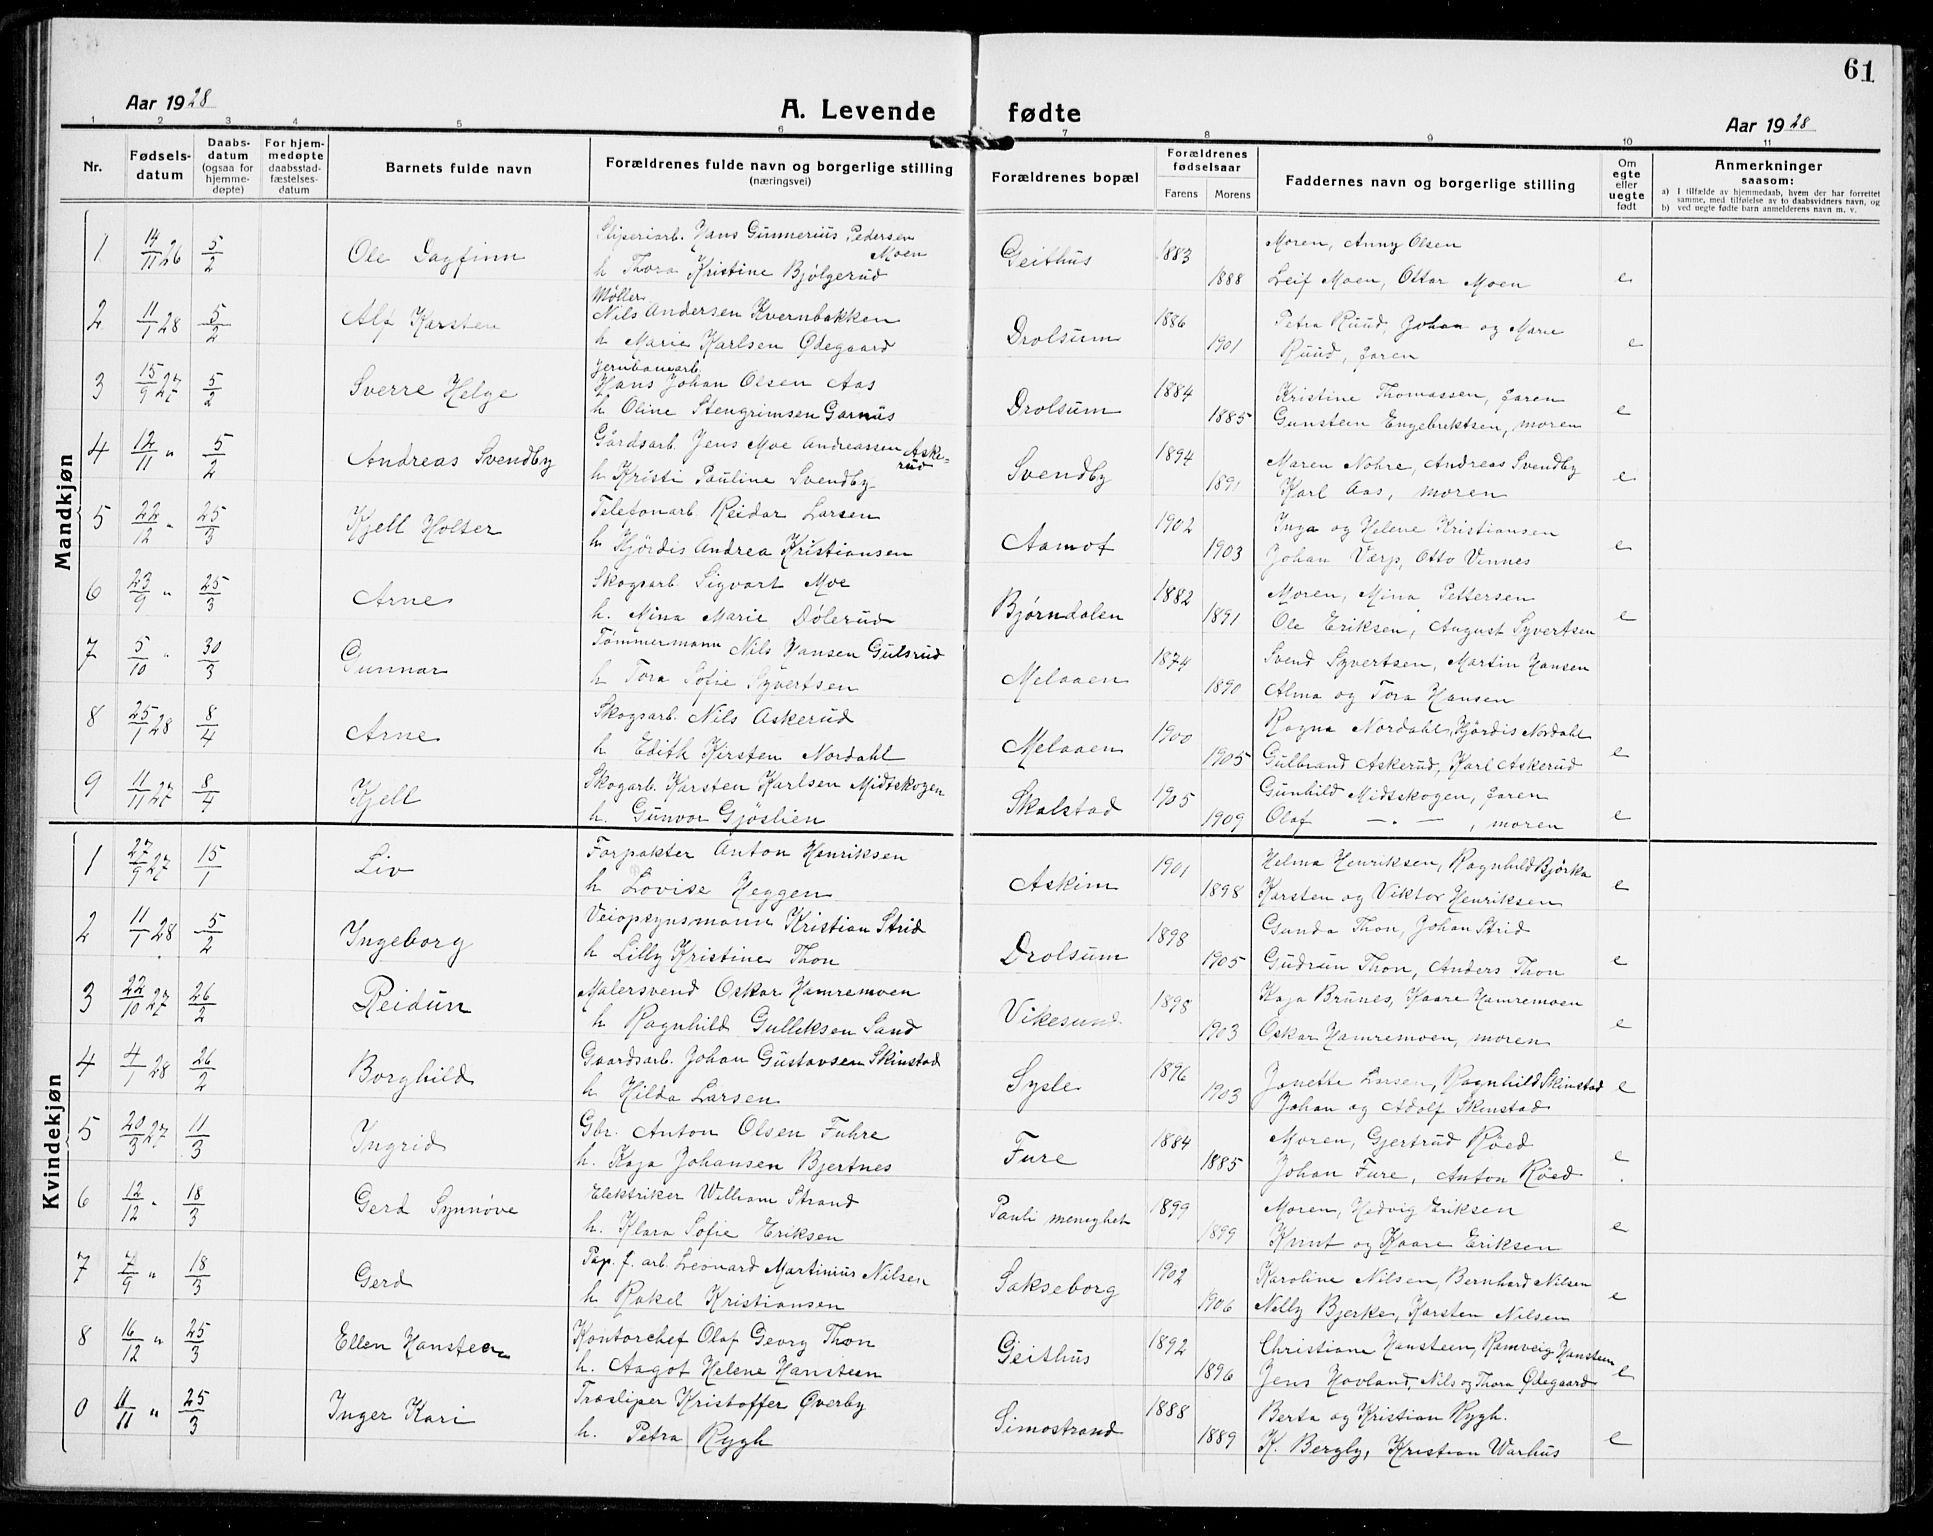 61
Aar 1928 A. Levende fødte Aar 1928
1 2 3 4 5 6 7 8 9 10 11
Nr. Fødsels-datum Daabs-datum (ogsaa for hjemme-døpte) For hjem-medøpte daabsstad-fæstelses-datum Barnets fulde navn Forældrenes fulde navn og borgerlige stilling (næringsvei) Forældrenes bopæl Forældrenes fødselsaar Farens Morens Faddernes navn og borgerlige stilling Om egte eller uegte født Anmerkninger saasom:
a) I tilfælde av hjemmedaab, hvem der har forrettet samme, med tilføielse av to daabsvidners navn, og
b) ved uegte fødte barn anmelderens navn m. v.
Mandkjøn
1 14/11 26 5/2 Ole Dagfinn Sliperiarb. Hans Gunnerius Pedersen Moen Geithus 1883 Moren, Anny Olsen
h Thora Kristine Bjølgerud 1888 Leif Moen, Ottar Moen e
2 11/1 28 5/2 Alf Karsten Møller Nils Andersen Kvernbakken Drolsum 1886 Petra Ruud, Johan og Marie
h Marie Karlsen Ødegaard 1901 Ruud, faren e
3 15/9 27 5/2 Sverre Helge Jernbanearb. Hans Johan Olsen Aas Drolsum 1884 Kristine Thomassen, faren
h Oline Stengrimsen Garnås 1885 Gunsteen Engebrektsen, moren e
4 12/11 " 5/2 Andreas Svendby Gårdsarb. Jens Moe Andreassen Askerud Svendby 1894 Maren Nohre, Andreas Svendby
h Kristi Pauline Svendby 1891 Karl Aas, moren e
5 22/12 " 25/3 Kjell Holter Telefonarb Reidar Larsen Aamot 1902 Inga og Helene Kristiansen
h. Hjördis Andrea Kristiansen 1903 Johan Værp, Otto Vinnes e
6 23/9 " 25/3 Arne Skogsarb. Sigvart Moe Bjørndalen 1882 Moren, Mina Pettersen
h. Mina Marie Dölerud 1891 Ole Eriksen, August Syvertsen e
7 5/10 " 30/3 Gunnar Tømmermann Nils Hansen Gulsrud Melaaen 1874 Svend Syvertsen, Martin Hansen
h Tora Sofie Syvertsen 1890 Alma og Tora Hansen
8 25/1 28 8/4 Arne Skogsarb. Nils Askerud Melaaen 1900 Ragna Nordahl, Hjördis Nordahl
h Edith Kirsten Nordahl 1905 Gulbrand Askerud, Karl Askerud e
9 11/11 27 8/4 Kjell Skogarb. Karsten Karlsen Midtskogen Skalstad 1905 Gunhild Midtskogen, faren
h. Gunvor Gjöslien 1909 Olaf — " — , moren e
Kvindekjøn
1 27/9 27 15/1 Liv Forpakter Anton Henriksen Askim 1901 Helma Henriksen, Ragnhild Bjørka
h Lovise Heggen 1898 Karsten og Viktor Henriksen e
2 11/1 28 5/2 Ingeborg Veiopsynsmann Kristian Strid Drolsum 1898 Gunda Thon, Johan Strid
h Lilly Kristine Thon 1905 Gudrun Thon, Anders Thon e
3 22/10 27 26/2 Reidun Malersvend Oskar Hamremoen Vikesund 1898 Kaja Brunes, Kaare Hamremoen
h Ragnhild Gulliksen Sand 1903 Oskar Hamremoen, moren e
4 4/1 28 26/2 Borghild Gaardsarb. Johan Gustavsen Skinstad Sysle 1896 Janette Larsen, Ragnhild Skinstad
h Hilda Larsen 1903 Johan og Adolf Skinstad e
5 20/3 27 11/3 Ingrid Gbr. Anton Olsen Fuhre Fure 1884 Moren, Gjertrud Røed
h. Kaja Johansen Bjertnes 1885 Johan Fure, Anton Røed e
6 12/12 " 18/3 Gerd Synnöve Elektriker William Strand Pauli menighet 1899 Moren, Hedvig Eriksen
h. Klara Sofie Eriksen 1899 Knut og Kaare Eriksen e
7 7/9 " 18/3 Gerd Pap. f. arb. Leonard Martinius Nilsen Sakseborg 1902 Karoline Nilsen, Bernhard Nilsen
h Rakel Kristiansen 1906 Nelly Bjerke, Karsten Nilsen e
8 16/12 " 25/3 Ellen Hansteen Kontorchef Olaf Georg Thon Geithus 1892 Christiane Hansteen, Ramveig Hansteen
h. Aagot Helene Hansteen 1896 Jens Hovland, Nils og Thora Ødegaard e
0 11/11 " 25/3 Inger Kari Træsliper Kristoffer Øverby Simostrand 1888 Berta og Kristian Rygh.
h. Petra Rygh 1889 K. Bergby, Kristian Warhus e